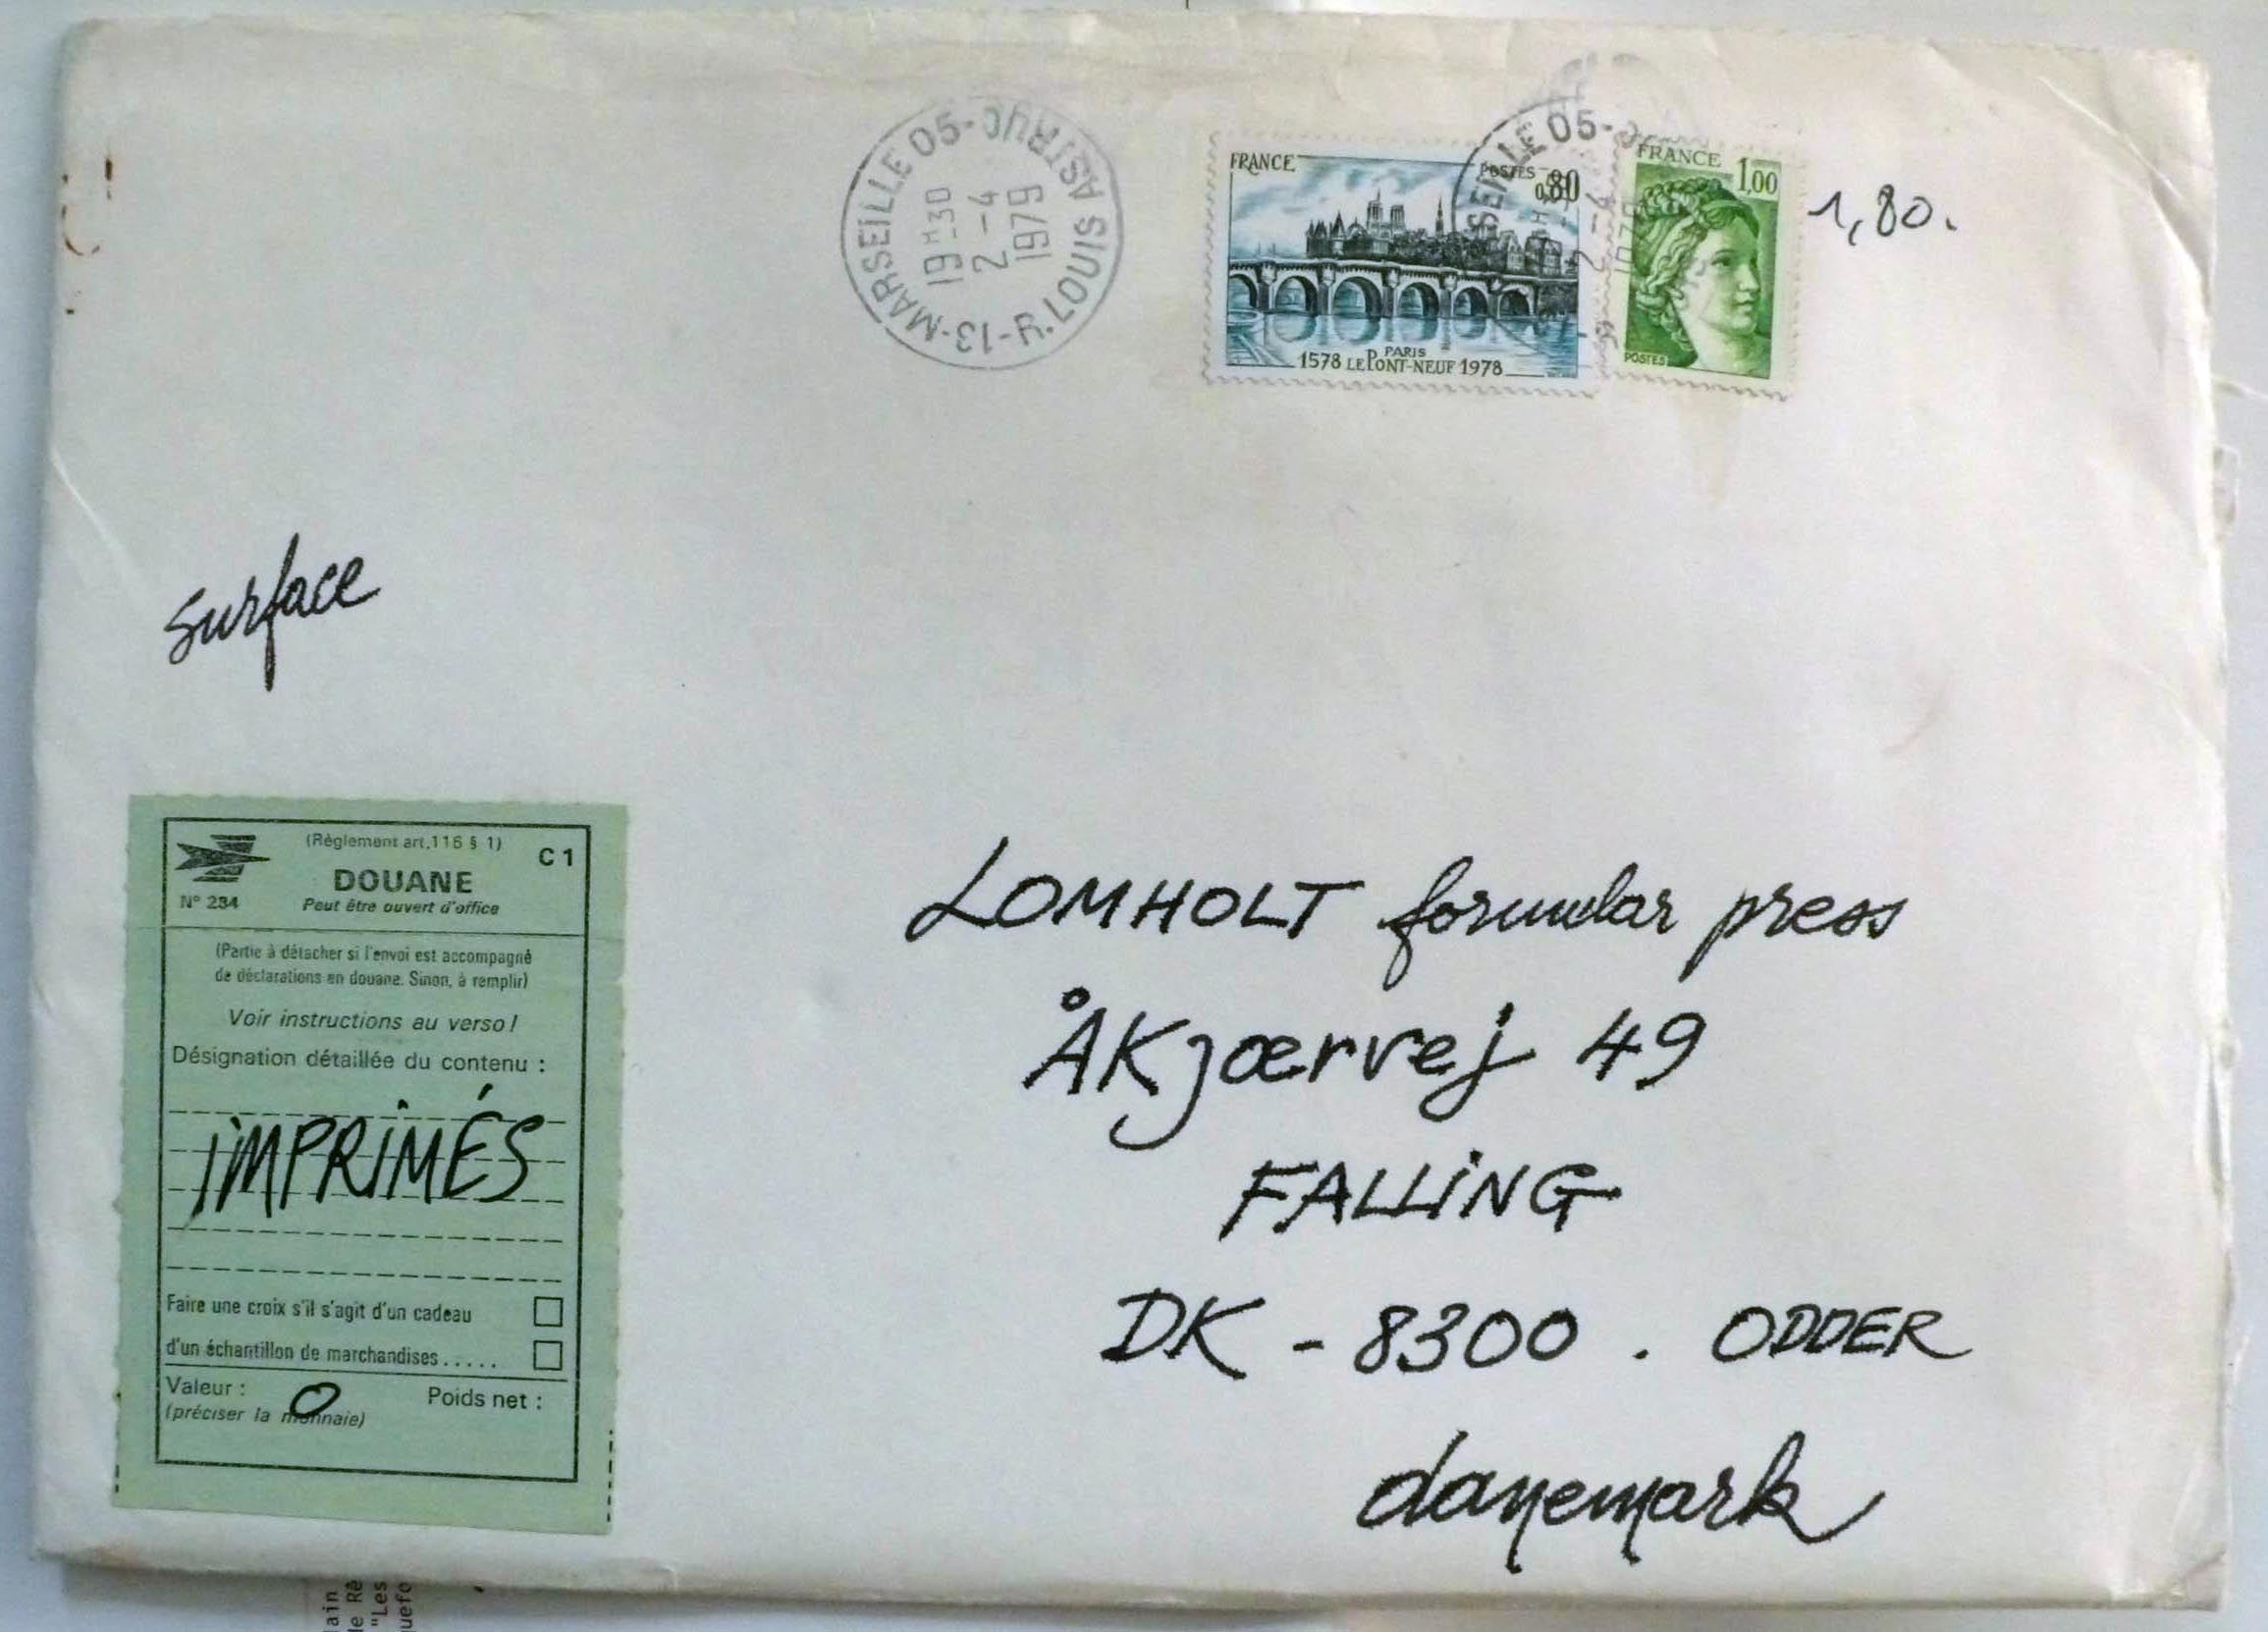 13-MARSEILLE 05-
R. LOUIS ASTRUC
19 H 30
2 - 4
1979
FRANCE
POSTES 0,80
PARIS
1578 LE PONT-NEUF 1978
FRANCE
1,00
POSTES
SEILLE 05-
2 - 4
1,80.
surface
(Règlement art. 116 § 1)
C 1
DOUANE
N° 234
Peut être ouvert d'office
(Partie à détacher si l'envoi est accompagné
de déclarations en douane. Sinon, à remplir)
Voir instructions au verso !
Désignation détaillée du contenu :
iMPRiMÉS
Faire une croix s'il s'agit d'un cadeau
d'un échantillon de marchandises .....
Valeur : 0
Poids net :
(préciser la monnaie)
LOMHOLT formular press
ÅKjærvej 49
FALLiNG
DK - 8300 . ODDER
danemark
"Les